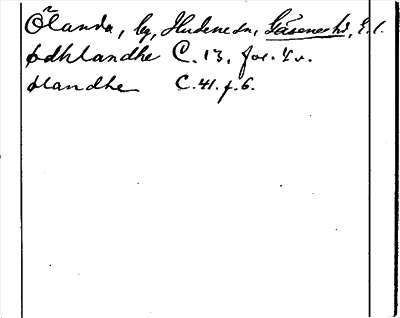 Õlanda, by, Hudene sn, Gäsene hd, E. l.
ødhlandhe C. 13, fol. 4 v.
ølandhe C. 41. f. 6.